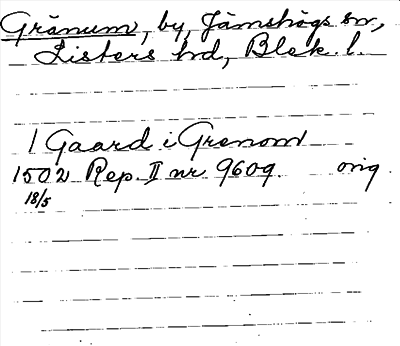 Gränum, by, Jämshögs sn,
Listers hd, Blek. l.
1 Gaard i Grenom
1502 Rep. II nr 9609. orig
18/5